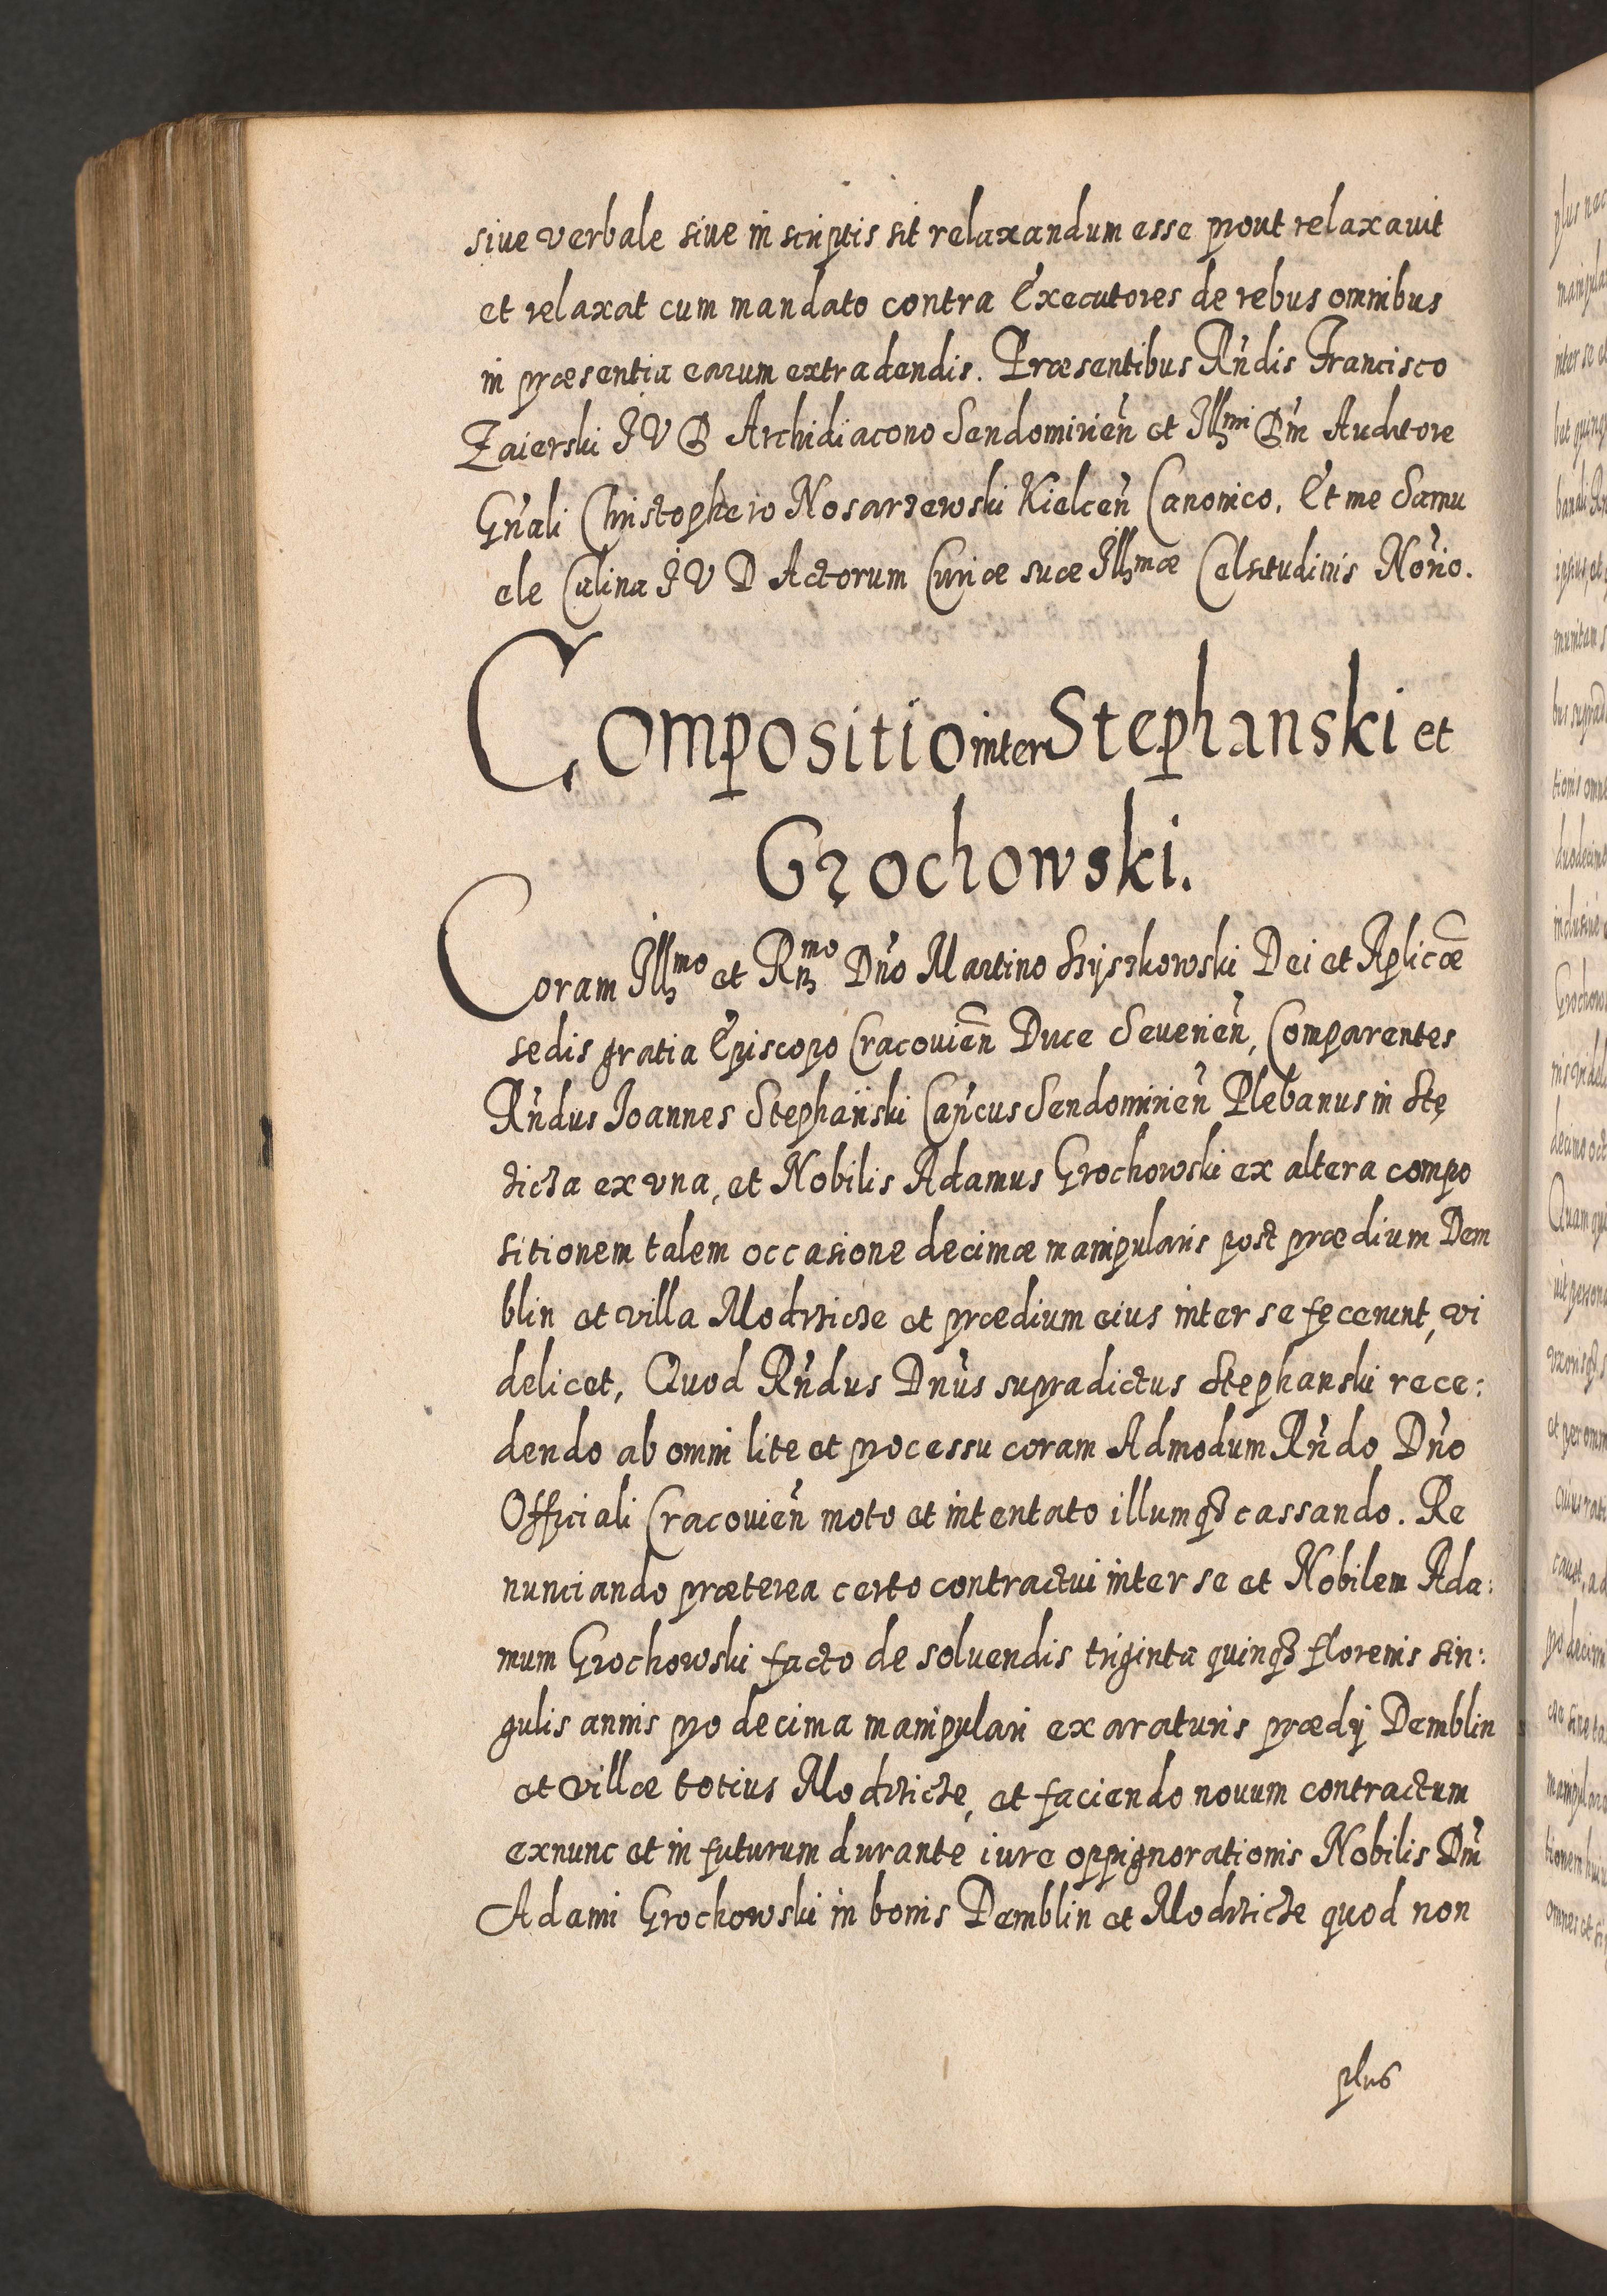 siue verbale siue in scriptis sit relaxandum esse prout relaxauit
et relaxat cum mandato contra Executores de rebus omnibus
in præsentia earum extradendis. Præsentibus Rńdis Francisco
Zaierski I V D Archidiacono Sendomirień et Illmi Dńi Auditore
Gńali Christophero Nosarzewski Kielceń Canonico. Et me Samu
ele Culina I V D Actorum Curiæ suæ Illmæ Celsitudinis Nório.
Compositio inter Stephanski et
Grochowski.
Coram Illmo et Rmo Dńo Martino Szyszkowski Dei et Aplicæ
sedis gratia Episcopo Cracouień Duce Seuerień, Comparentes
Rńdus Ioannes Stephański Cańcus Sendomirień Plebanus in Stę
zicza ex vna, et Nobilis Adamus Grochowski ex altera compo
sitionem talem occasione decimæ manipularis post prædium Dem
blin et villa Modrzicze et prædium eius inter se fecerunt, vi
delicet, Quod Rńdus Dnús supradictus Stephanski rece:
dendo ab omni lite et processu coram Admodum Rńdo Dńo
Officiali Cracouień moto et intentato illumq3 cassando. Re
nunciando præterea certo contractui inter se et Nobilem Ada:
mum Grochowski facto de soluendis triginta quinq3 florenis sin:
gulis annis pro decima manipulari ex araturis prædij Demblin
et villæ totius Modrzicze, et faciendo nouum contractum
exnunc et in futurum durante iure oppignorationis Nobilis Dńi
Adami Grochowski in bonis Demblin et Modrzicze quod non
plus